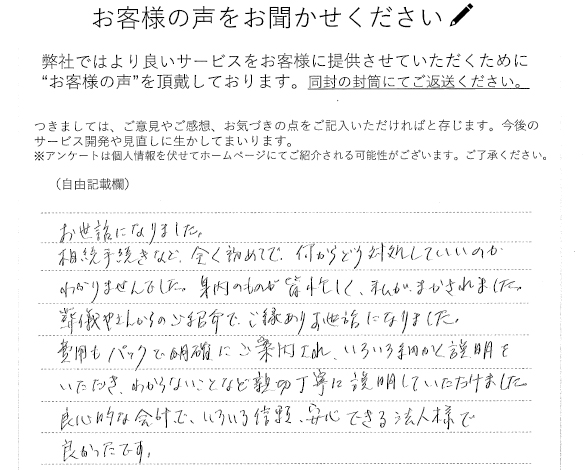 お客様の声をお聞かせください
弊社ではより良いサービスをお客様に提供させていただくために
“お客様の声”を頂戴しております。同封の封筒にてご返送ください。
つきましては、ご意見やご感想、お気づきの点をご記入いただければと存じます。今後の
サービス開発や見直しに生かしてまいります。
※アンケートは個人情報を伏せてホームページにてご紹介される可能性がございます。ご了承ください。
（自由記載欄）
お世話になりました。
相続手続きなど、全く初めてで、何からどう対処していいのか
わかりませんでした。身内のものが皆忙しく、私がまかされました。
葬儀やさんからのご紹介で、ご縁ありお世話になりました。
費用もパックで明確にご案内され、いろいろ細かく説明を
いただき、わからないことなど親切丁寧に説明していただけました。
良心的な会計で、いろいろ信頼、安心できる法人様で
良かったです。